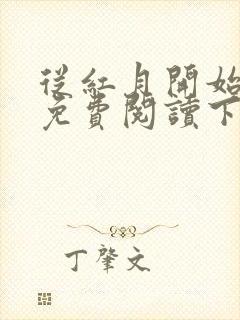 從紅月開始
免費閱讀下
丁肇文